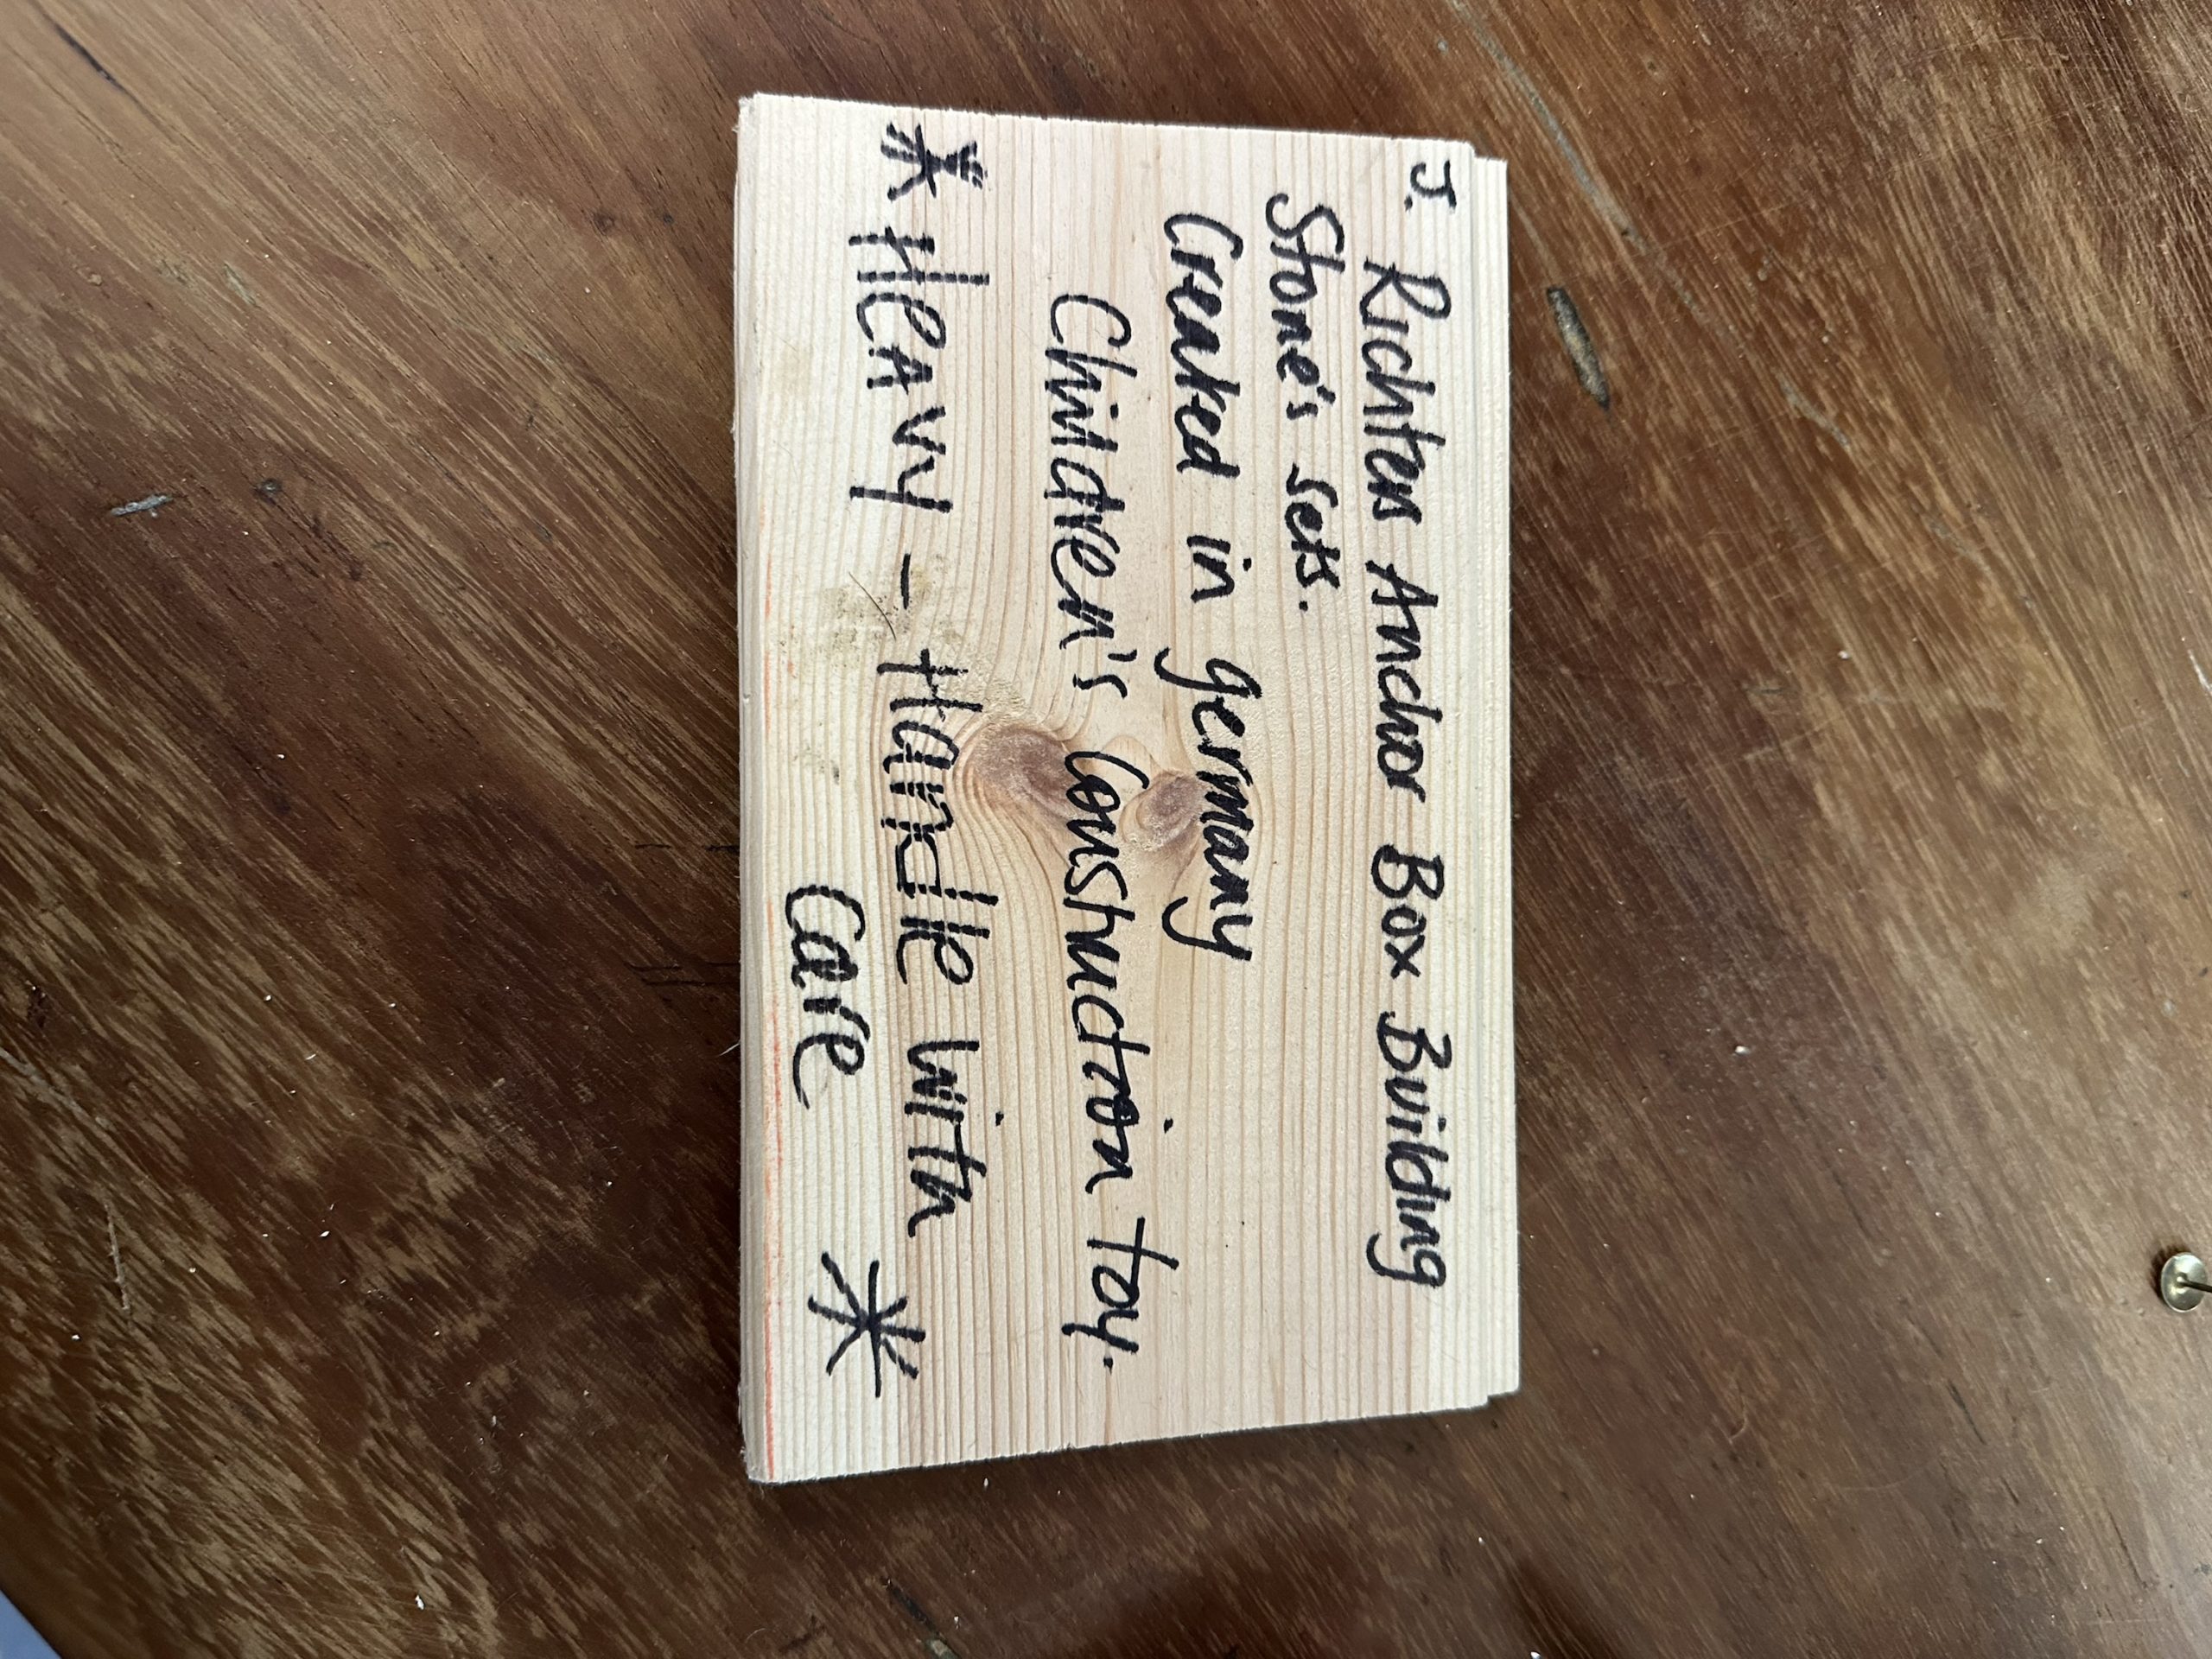 J. Richters Anchor Box Building
Stone's sets.
Created in germany
Children's Construction toy.
* HEAVY - Handle with
Care *